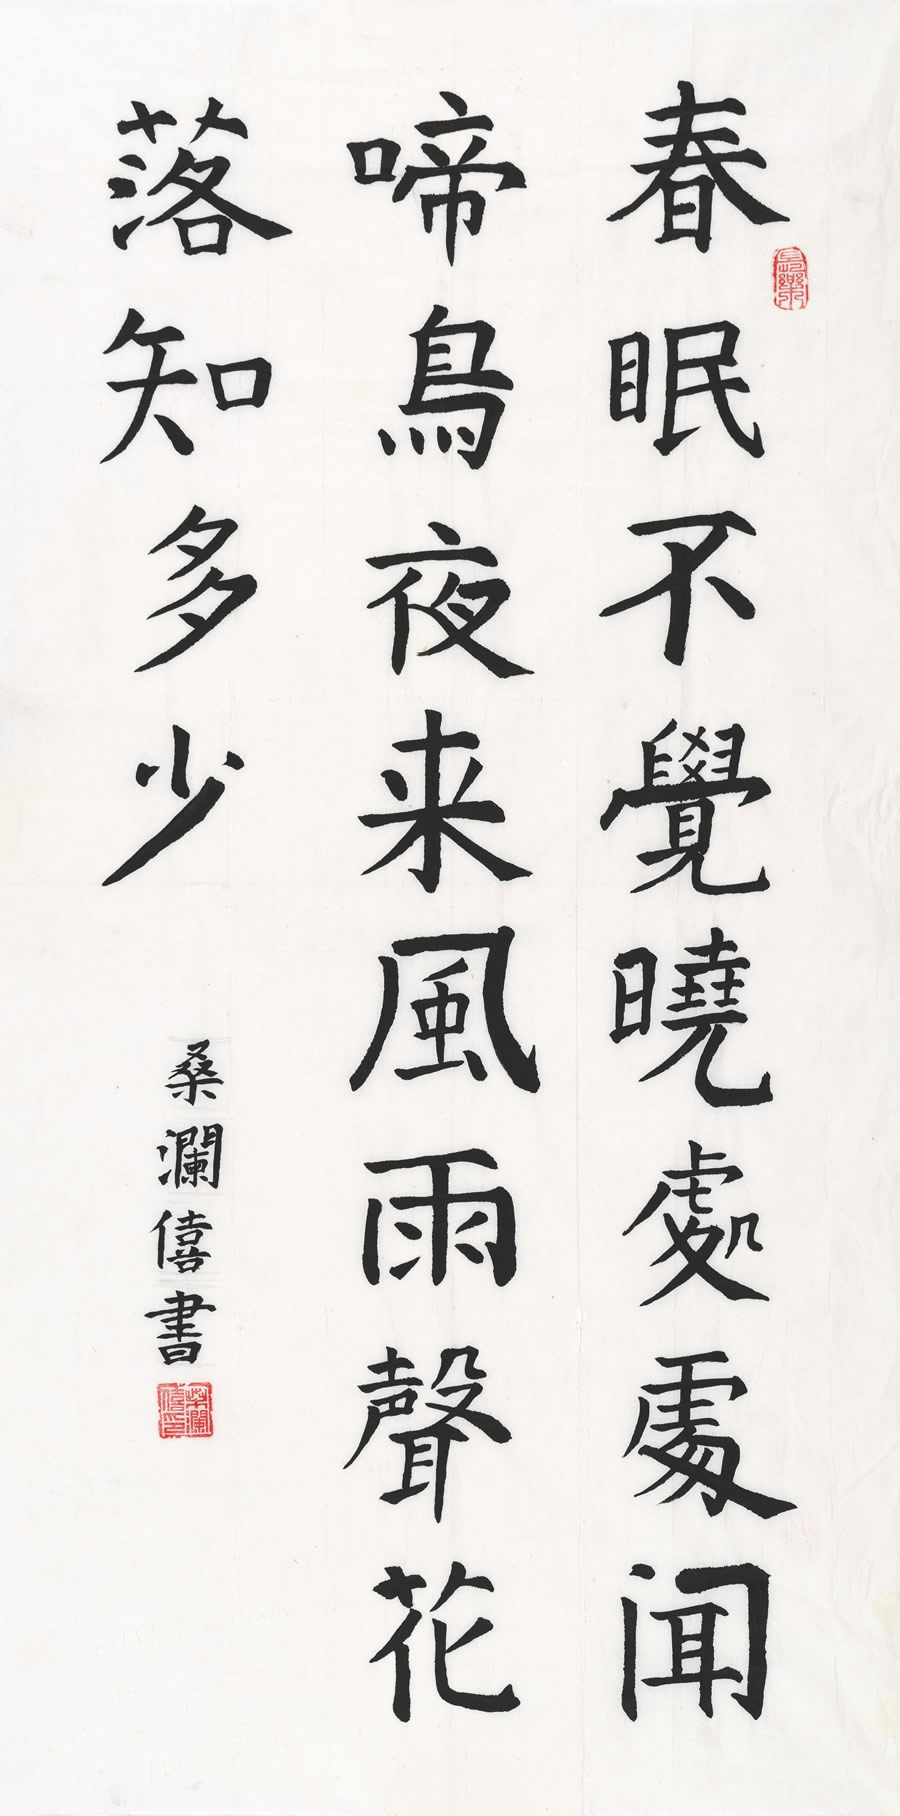 春眠不覺曉處處闻
啼鳥夜来風雨聲花
落知多少
桑瀾僖書